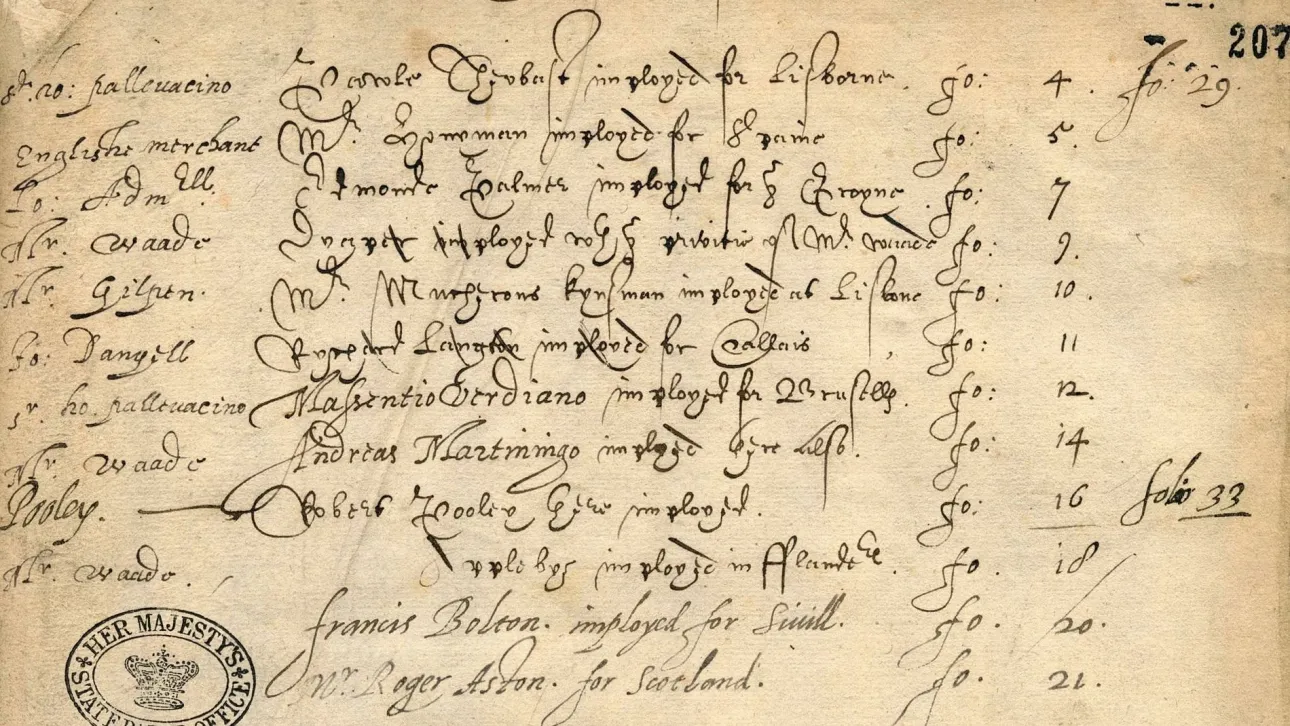 207
Sr. ho: pallevacino Pawle Theobast imployed for Lisborne. fo: 4. fo: 29.
Englishe merchant Mr. Honyman imployed for Spaine fo: 5.
Lo: Admll. Edmonde Palmer imployed for ye Groyne. fo: 7
Mr. Waade Draper imployed wth ye privitie of Mr. Waade fo: 9.
Mr. Gilpen. Mr. Mucherons kynsman imployed at Lisbone fo: 10.
Jo: Danyell Rychard Langton imployed for Callais fo: 11
Sr. ho. pallevacino Massentio Verdiano imployed for Brusells. fo: 12.
Mr. Waade Andreas Martiningo imployed here also. fo: 14
Pooley. Robert Pooley here imployed. fo: 16 folio 33
Mr. Waade. Applebys imployed in fflanders. fo. 18
francis Bolton. imployed for Sivill. fo. 20.
Mr. Roger Aston. for Scotland. fo. 21.
HER MAJESTY'S STATE PAPER OFFICE